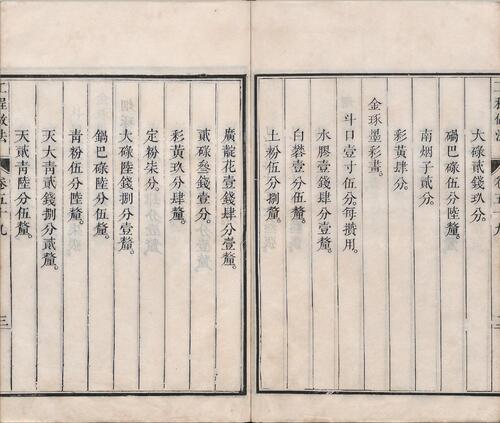 大碌貳錢玖分。
碯巴碌伍分陸釐。
南烟子貳分。
彩黃肆分。
金琢墨彩畫。
斗口壹寸伍分。每攢用。
水膠壹錢肆分壹釐。
白礬壹分伍釐。
土粉伍分捌釐。
廣靛花壹錢肆分壹釐。
貳碌叁錢壹分。
彩黃玖分肆釐。
定粉柒分。
大碌陸錢捌分壹釐。
鍋巴碌陸分伍釐。
青粉伍分陸釐。
天大青貳錢捌分貳釐。
天貳青陸分伍釐。
工程做法
卷五十九
三